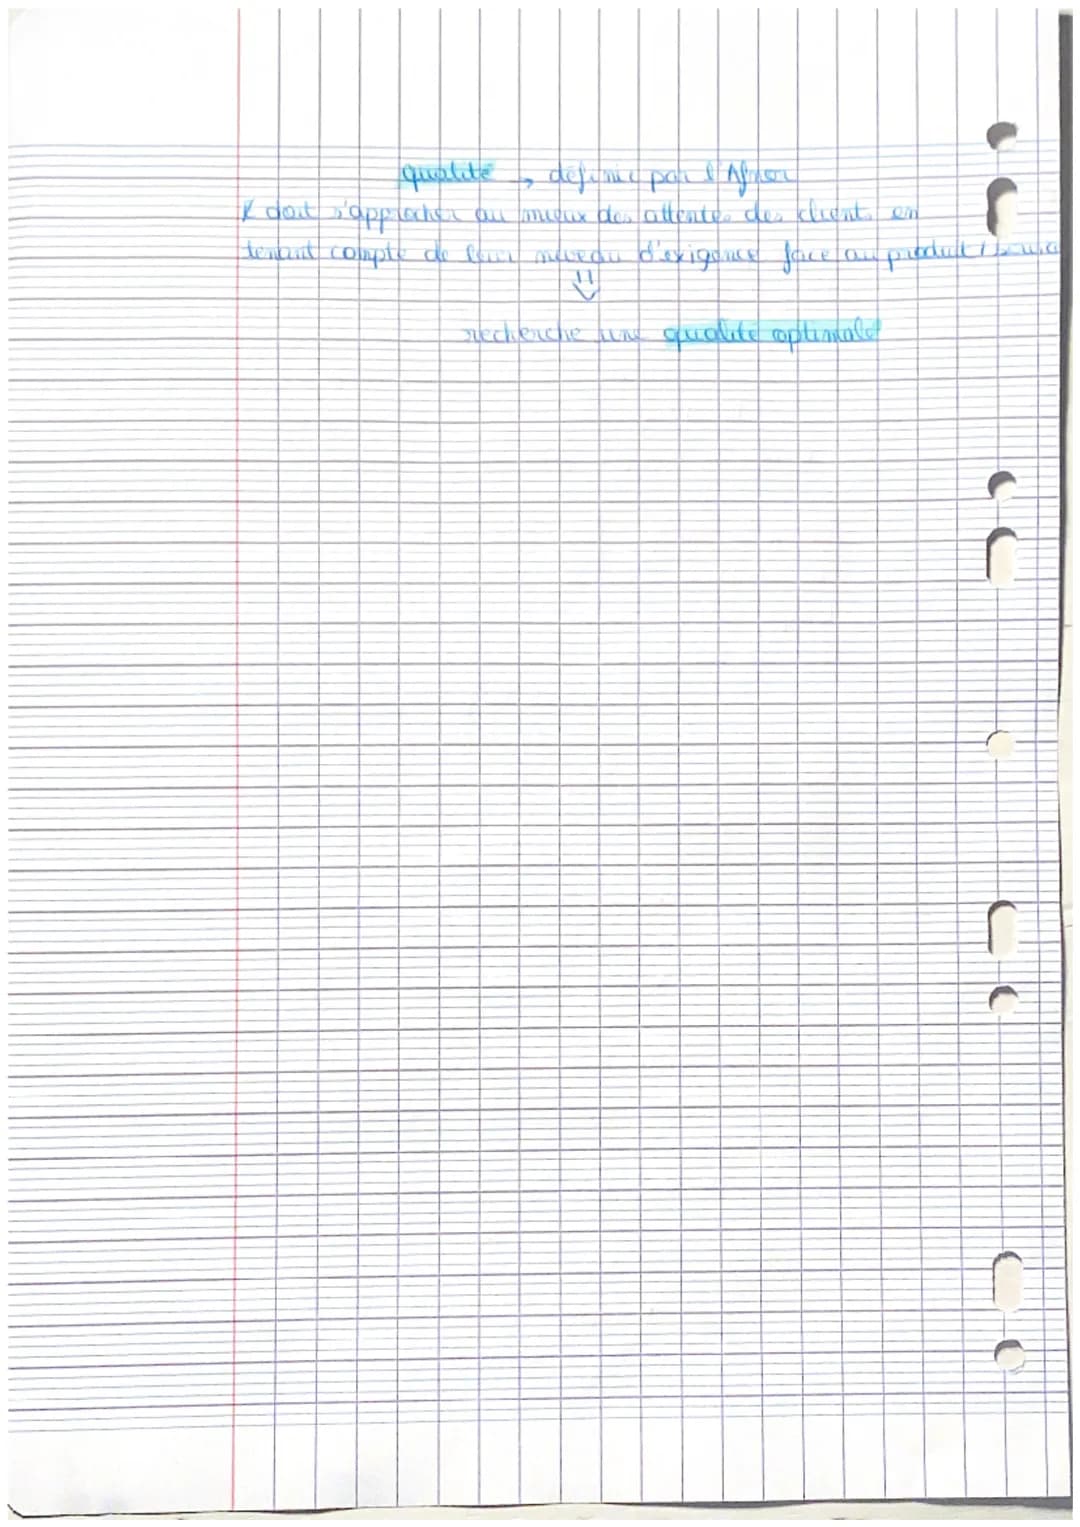 qualité → définie par l'Afnor
doit s'approcher au mieux des attentes des clients en
tenant compte de leur niveau d'exigence face au produit /
⇓
recherche une qualité optimale